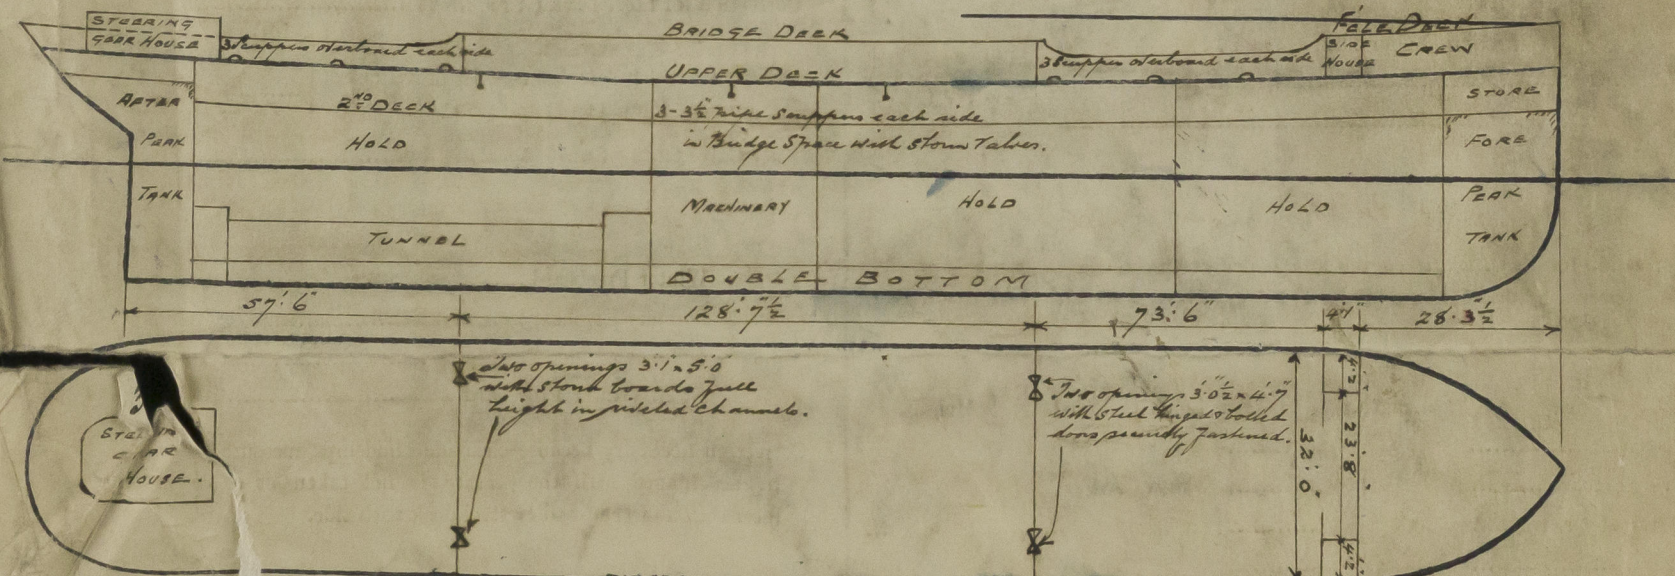 STEERING
GEAR HOUSE
3 Scuppers overboard each side
BRIDGE DECK
3 Scuppers overboard each side
F'CLE DECK
SIDE
HOUSE
CREW
UPPER DECK
AFTER
PEAK
TANK
2ND DECK
HOLD
3-3½" pipe scuppers each side
in Bridge Space with Storm Valves.
STORE
FORE
PEAK
TANK
MACHINERY
HOLD
HOLD
TUNNEL
DOUBLE BOTTOM
57'.6"
128'.7½"
73'.6"
4'.1"
28.3½"
Two openings 3'.1" x 5'.0"
with storm boards full
height in riveted channels.
Two openings 3'.0½" x 4'.7"
with steel hinged & bolted
doors securely fastened.
STEERING
GEAR
HOUSE.
32'.0"
4'.2"
23'.8"
4'.2"